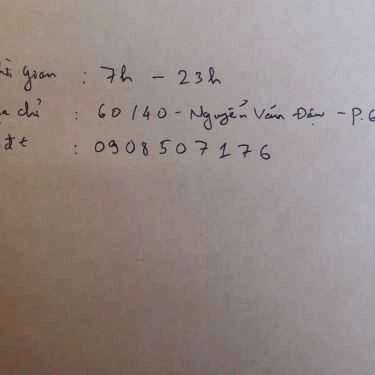 hời gian : 7h - 23h
ịa chỉ : 60/40 - Nguyễn Văn Đậu - P.6
đt : 0908507176